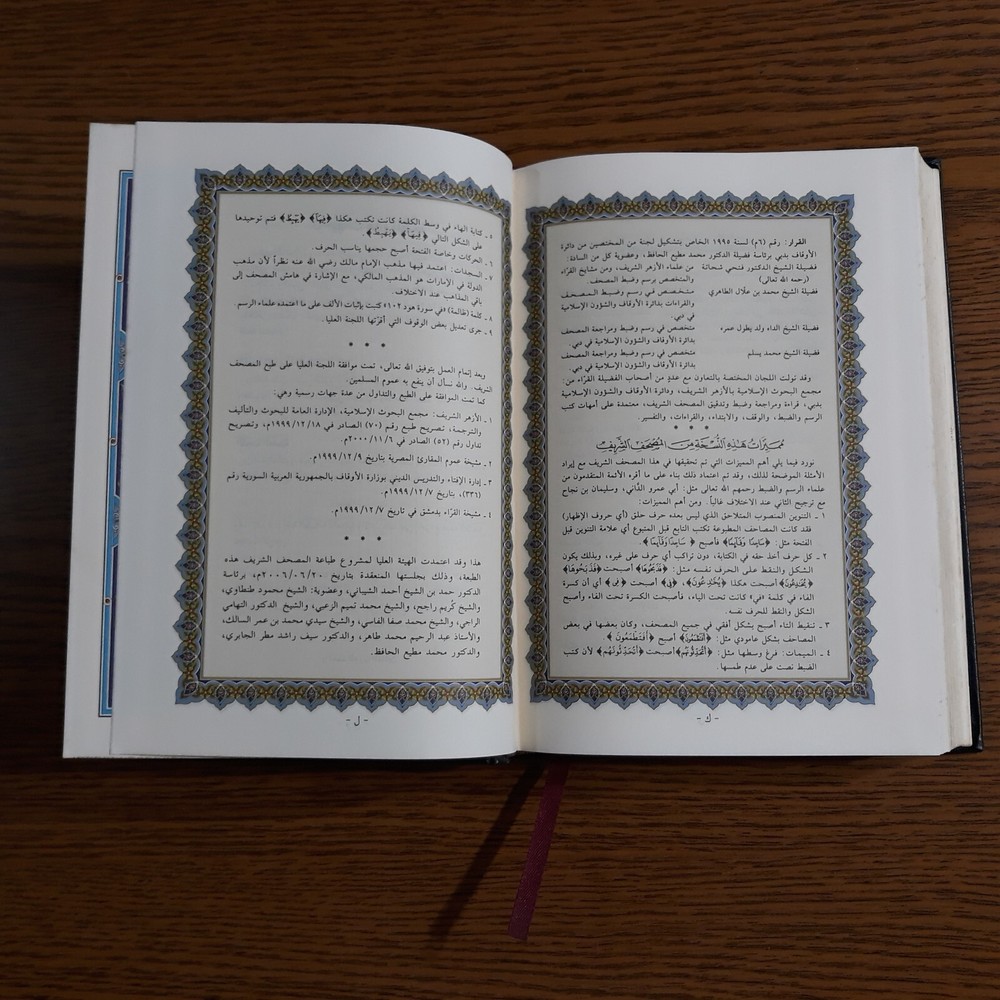 القرار: رقم (٦م) لسنة ١٩٩٤ الخاص بتشكيل لجنة من المختصين من دائرة
الأوقاف بدبي برئاسة فضيلة الدكتور محمد مطيع الحافظ، وعضوية كل من السادة:
فضيلة الشيخ الدكتور فتحي شحاتة من علماء الأزهر الشريف، ومن مشايخ القرّاء
(رحمه الله تعالى) والمتخصص برسم وضبط المصحف.
فضيلة الشيخ محمد بن علّال الطاهري متخصص في رسم وضبط المصحف
والقراءات بدائرة الأوقاف والشؤون الإسلامية
في دبي.
فضيلة الشيخ الداه ولد يطول عمره متخصص في رسم وضبط ومراجعة المصحف
بدائرة الأوقاف والشؤون الإسلامية في دبي.
فضيلة الشيخ محمد يسلم متخصص في رسم وضبط ومراجعة المصحف
بدائرة الأوقاف والشؤون الإسلامية في دبي.
وقد تولت اللجان المختصة بالتعاون مع عددٍ من أصحاب الفضيلة القرّاء من:
مجمع البحوث الإسلامية بالأزهر الشريف، ودائرة الأوقاف والشؤون الإسلامية
بدبي، قراءة ومراجعة وضبط وتدقيق المصحف الشريف، معتمدة على أمهات كتب
الرسم، والضبط، والوقف، والابتداء، والقراءات، والتفسير.
* * *
مميزات هذه النسخة من المصحف الشريف
نورد فيما يلي أهم المميزات التي تم تحقيقها في هذا المصحف الشريف مع إيراد
الأمثلة الموضحة لذلك، وقد تم اعتماد ذلك بناء على ما أقره الأئمة المتقدمون من
علماء الرسم والضبط رحمهم الله تعالى مثل: أبي عمرو الدَّاني، وسليمان بن نجاح
مع ترجيح الثاني عند الاختلاف غالباً. ومن أهم المميزات:
١ ـ التنوين المنصوب المتلاحق الذي ليس بعده حرف حلق (أي حروف الإظهار)
فلقد كانت المصاحف المطبوعة تكتب التابع قبل المتبوع أي علامة التنوين قبل
الفتحة مثل: ﴿سَاجِدًا وَقَآئِمًا﴾ فأصبح ﴿سَاجِدًا وَقَآئِمًا﴾.
٢ ـ كل حرف أخذ حقه في الكتابة، دون تراكب أي حرف على غيره، وبذلك يكون
الشكل والنقط على الحرف نفسه مثل: ﴿فَذَبَحُوهَا﴾ أصبحت ﴿فَذَبَحُوهَا﴾
﴿يُخَٰدِعُونَ﴾ أصبحت هكذا ﴿يُخَٰدِعُونَ﴾، ﴿فِي﴾ أصبحت ﴿فِي﴾ أي أن كسرة
الفاء في كلمة «في» كانت تحت الياء، فأصبحت الكسرة تحت الفاء وأصبح
الشكل والنقط للحرف نفسه.
٣ ـ تنقيط التاء أصبح بشكل أفقي في جميع المصحف، وكان بعضها في بعض
المصاحف بشكل عامودي مثل: ﴿أَفَتَطْمَعُونَ﴾ أصبح ﴿أَفَتَطْمَعُونَ﴾.
٤ ـ الميمات: فرغ وسطها مثل: ﴿أَتُحَدِّثُونَهُم﴾ أصبحت ﴿أَتُحَدِّثُونَهُم﴾ لأن كتب
الضبط نصت على عدم طمسها.
- ك -
٥ ـ كتابة الهاء في وسط الكلمة كانت تكتب هكذا ﴿فِيهَآ﴾ ﴿يَهْبِطُ﴾ فتم توحيدها
على الشكل التالي ﴿فِيهَآ﴾ ﴿يَهْبِطُ﴾.
٦ ـ الحركات وخاصة الفتحة أصبح حجمها يناسب الحرف.
٧ ـ السجدات: اعتمد فيها مذهب الإمام مالك رضي الله عنه نظراً لأن مذهب
الدولة في الإمارات هو المذهب المالكي، مع الإشارة في هامش المصحف إلى
باقي المذاهب عند الاختلاف.
٨ ـ كلمة (ظالمة) «في سورة هود ١٠٢» كتبت بإثبات الألف على ما اعتمده علماء الرسم.
٩ ـ جرى تعديل بعض الوقوف التي أقرّتها اللجنة العليا.
* * *
وبعد إتمام العمل بتوفيق الله تعالى، تمت موافقة اللجنة العليا على طبع المصحف
الشريف. والله نسأل أن ينفع به عموم المسلمين.
كما تمت الموافقة على الطبع والتداول من عدة جهات رسمية وهي:
١ ـ الأزهر الشريف: مجمع البحوث الإسلامية، الإدارة العامة للبحوث والتأليف
والترجمة، تصريح طبع رقم (٧٠) الصادر في ١٩٩٩/١٢/١٨م، وتصريح
تداول رقم (٥٢) الصادر في ٢٠٠٠/١١/٦م.
٢ ـ مشيخة عموم المقارئ المصرية بتاريخ ١٩٩٩/١٢/٩م.
٣ ـ إدارة الإفتاء والتدريس الديني بوزارة الأوقاف بالجمهورية العربية السورية رقم
(٣٣٦)، بتاريخ ١٩٩٩/١٢/٧م.
٤ ـ مشيخة القرّاء بدمشق في تاريخ ١٩٩٩/١٢/٧م.
* * *
هذا وقد اعتمدت الهيئة العليا لمشروع طباعة المصحف الشريف هذه
الطبعة، وذلك بجلستها المنعقدة بتاريخ ٢٠٠٦/٠٦/٢٠م، برئاسة
الدكتور حمد بن الشيخ أحمد الشيباني، وعضوية: الشيخ محمود طنطاوي،
والشيخ كُريم راجح، والشيخ محمد تميم الزعبي، والشيخ الدكتور التهامي
الراجي، والشيخ محمد صفا الفاسي، والشيخ سيدي محمد بن عمر السالك،
والأستاذ عبد الرحيم محمد طاهر، والدكتور سيف راشد مطر الجابري،
والدكتور محمد مطيع الحافظ.
- ل -